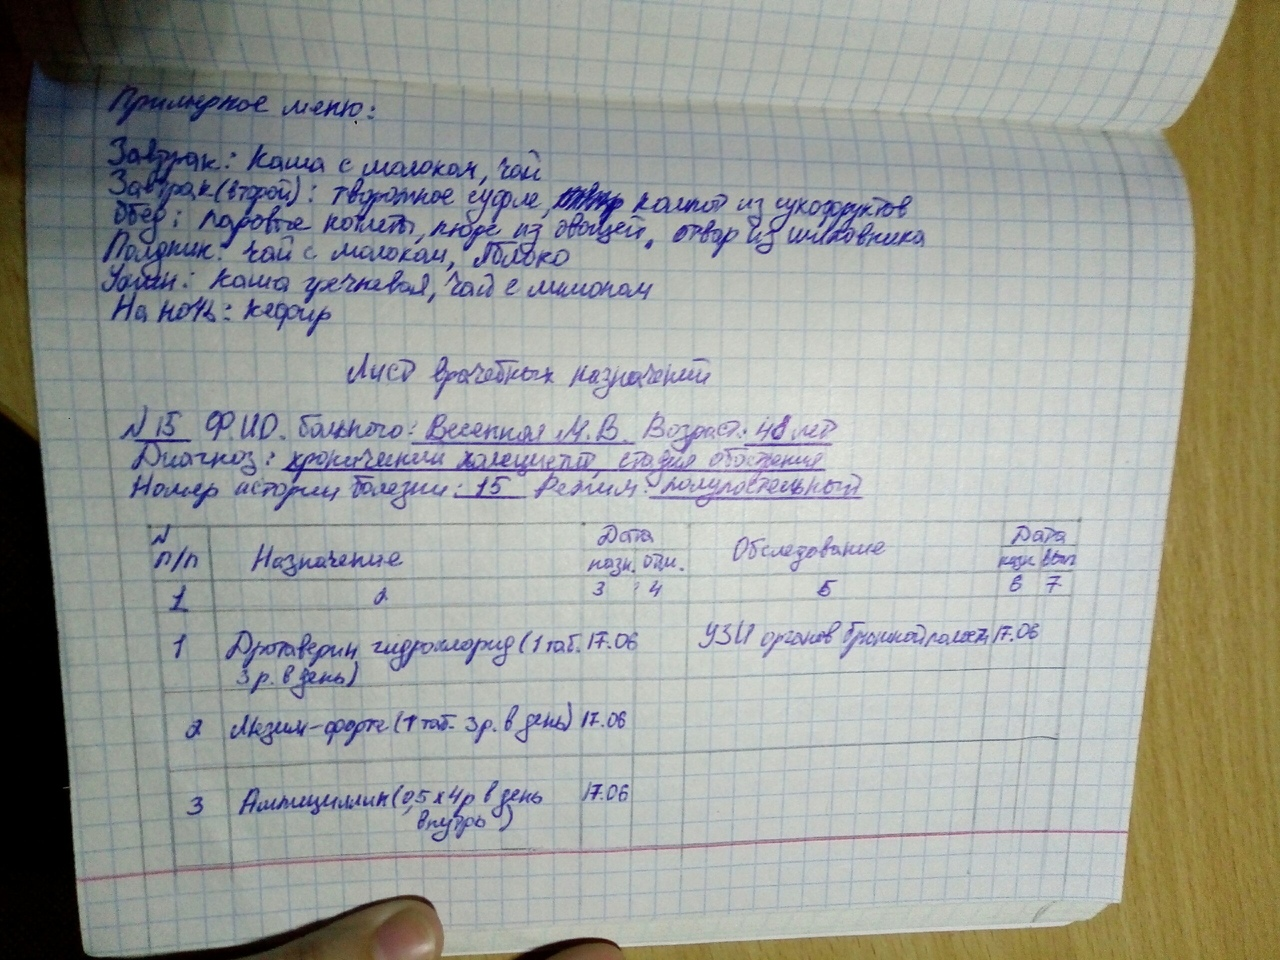 Примерное меню:
Завтрак: каша с молоком, чай
Завтрак(второй): творожное суфле, компот из сухофруктов
Обед: паровые котлеты, пюре из овощей, отвар из шиповника
Полдник: чай с молоком, яблоко
Ужин: каша гречневая, чай с молоком
На ночь: кефир
Лист врачебных назначений
N 15 Ф.И.О. больного: Весенняя М.В. Возраст: 48 лет
Диагноз: хронический холецистит, стадия обострения
Номер истории болезни: 15 Режим: полупостельный
N п/п Назначение Дата назн. отм. Обследование Дата назн. вып
1 2 3 4 5 6 7
1 Дротаверин гидрохлорид (1 таб. 17.06 УЗИ органов брюшной полости 17.06
3 р. в день)
2 Мезим-форте (1 таб. 3 р. в день) 17.06
3 Ампициллин (0,5 х 4 р в день 17.06
внутрь)